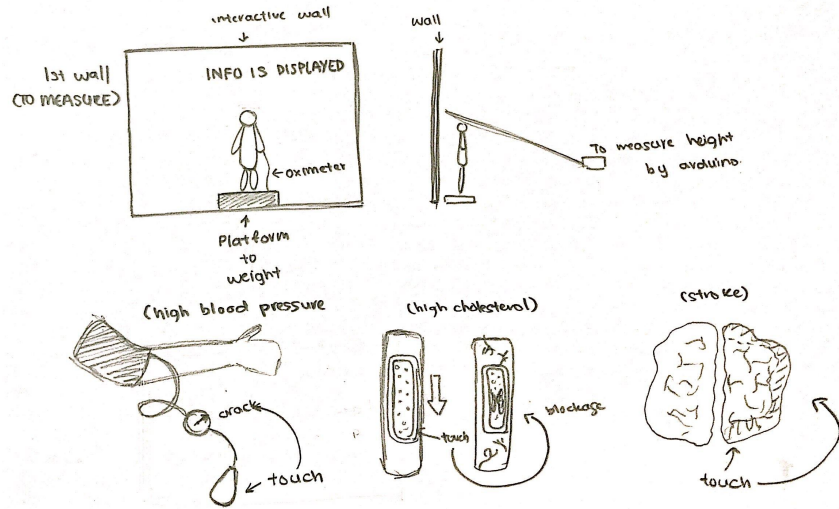 interactive wall
1st wall
(TO MEASURE)
INFO IS DISPLAYED
oximeter
Platform
to
weight
wall
To measure height
by arduino.
(high blood pressure
crack
touch
(high cholesterol)
touch
blockage
(stroke)
touch